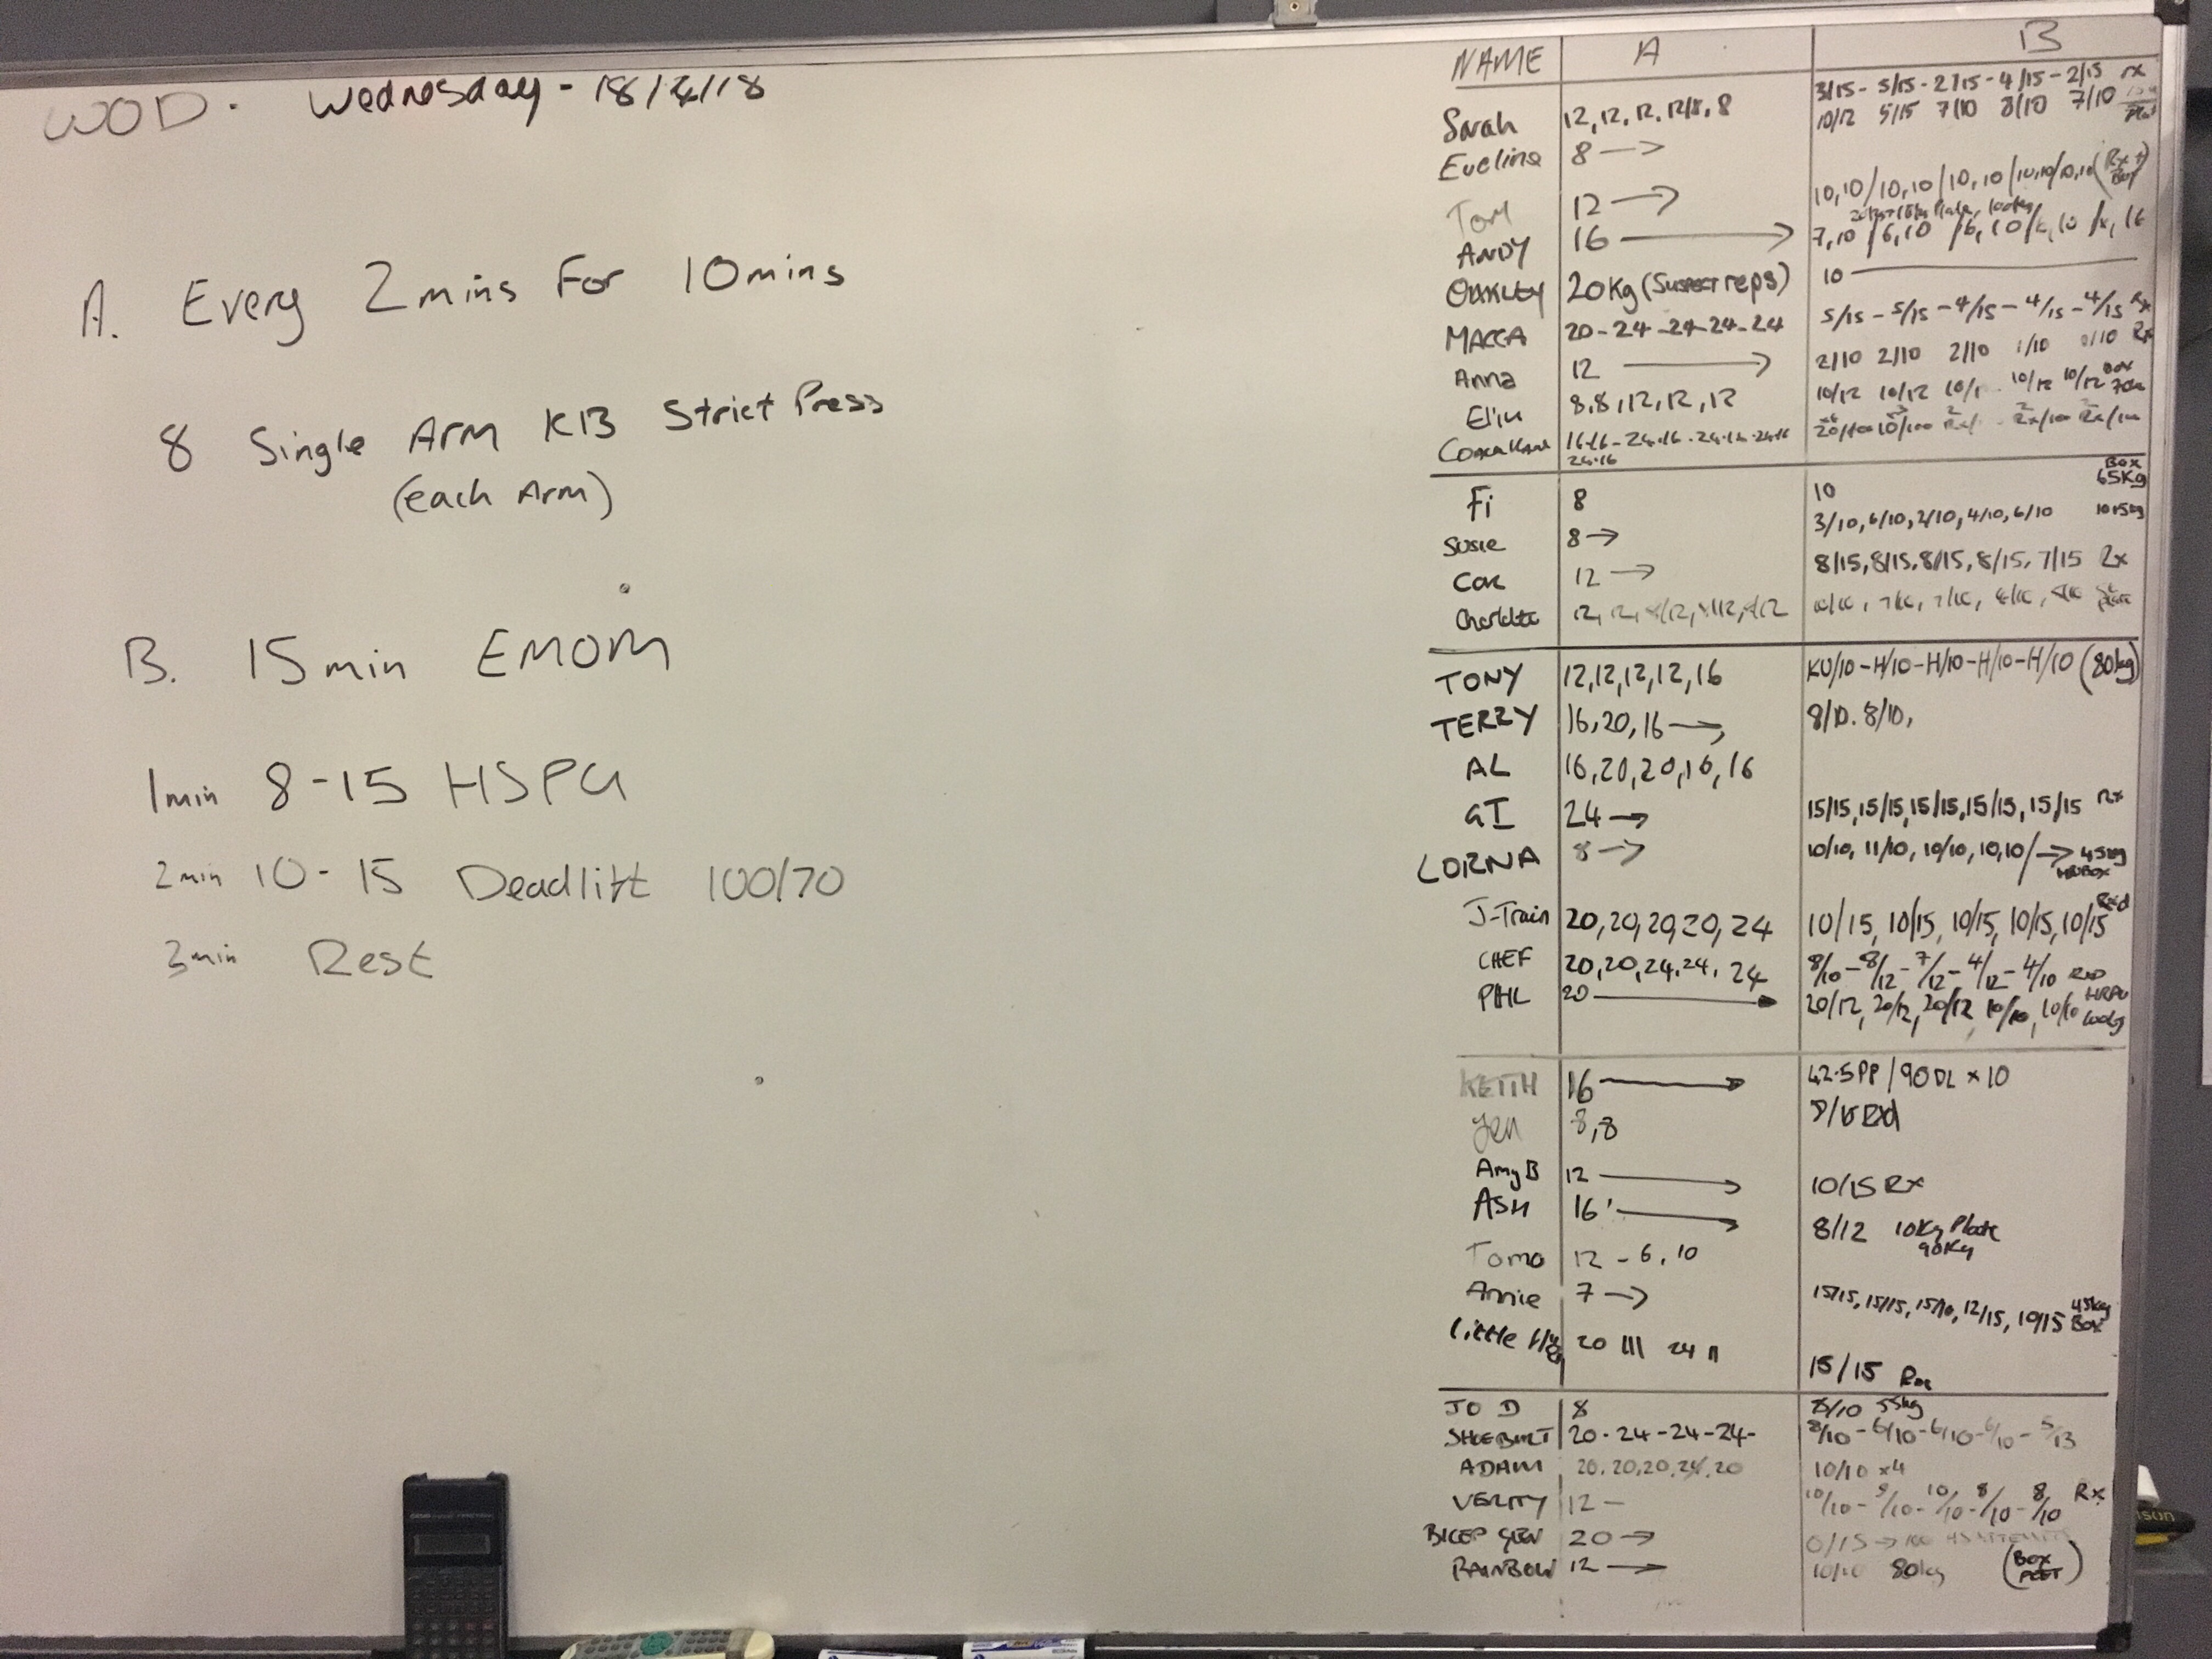 WOD. Wednesday - 18/4/18
A. Every 2mins For 10mins
8 Single Arm KB Strict Press
(each Arm)
B. 15min EMOM
1min 8-15 HSPU
2min 10-15 Deadlift 100/70
3min Rest
NAME A B
Sarah 12, 12, 12, 12/8, 8 3/15 - 5/15 - 2/15 - 4/15 - 2/15 rx
Eveline 8 → 10/12 5/15 7/10 8/10 7/10
Tom 12 → 10,10/10,10/10,10/10,10/10,10 (Rx +
ANDY 16 → 7,10 /6,10 /6,10
OAKLEY 20Kg (SUSPECT reps) 10
MACCA 20 - 24 - 24 - 24 - 24 5/15 - 5/15 - 4/15 - 4/15 - 4/15 Rx
Anna 12 → 2/10 2/10 2/10 1/10 0/10 Rx
8,8,12,12,12 10/12 10/12 10/12 10/12 BOX
BOX
65Kg
Fi 8 10
Susie 8 → 3/10, 6/10, 2/10, 4/10, 6/10
12 → 8/15, 8/15, 8/15, 8/15, 7/15 Rx
Charlotte
TONY 12,12,12,12,16 KU/10 - H/10 - H/10 - H/10 - H/10 (80kg)
TERRY 16,20,16 → 8/10. 8/10,
AL 16,20,20,16,16
GI 24 → 15/15, 15/15, 15/15, 15/15, 15/15 Rx
LORNA 8 → 10/10, 11/10, 10/10, 10,10/ → 45kg
J-Train 20,20,20,20,24 10/15, 10/15, 10/15, 10/15, 10/15 Rxd
CHEF 20,20,24,24,24 8/10 - 8/12 - 7/12 - 4/12 - 4/10 RXD
PHIL 20 → 20/12, 20/12, 20/12, 10/10, 10/10
KEITH 16 → 42.5PP / 90DL x 10
Jen 8,8
Amy B 12 → 10/15 Rx
ASH 16 → 8/12 10Kg Plate
90Kg
Tomo 12 - 6, 10
Annie 7 → 15/15, 15/15, 15/10, 12/15, 10/15 45kg Box
Little 20 III 24 II
15/15 Rx
JO D 8 8/10 55kg
20 - 24 - 24 - 24 - 8/10 - 6/10 - 6/10 - 6/10 - 5/13
ADAM 20,20,20,24,20 10/10 x4
VERITY 12 - 10/10 - 9/10 - 10/10 - 8/10 - 8/10 Rx
BICEP 20 → 0/15 →
RAINBOW 12 → 10/10 80kg